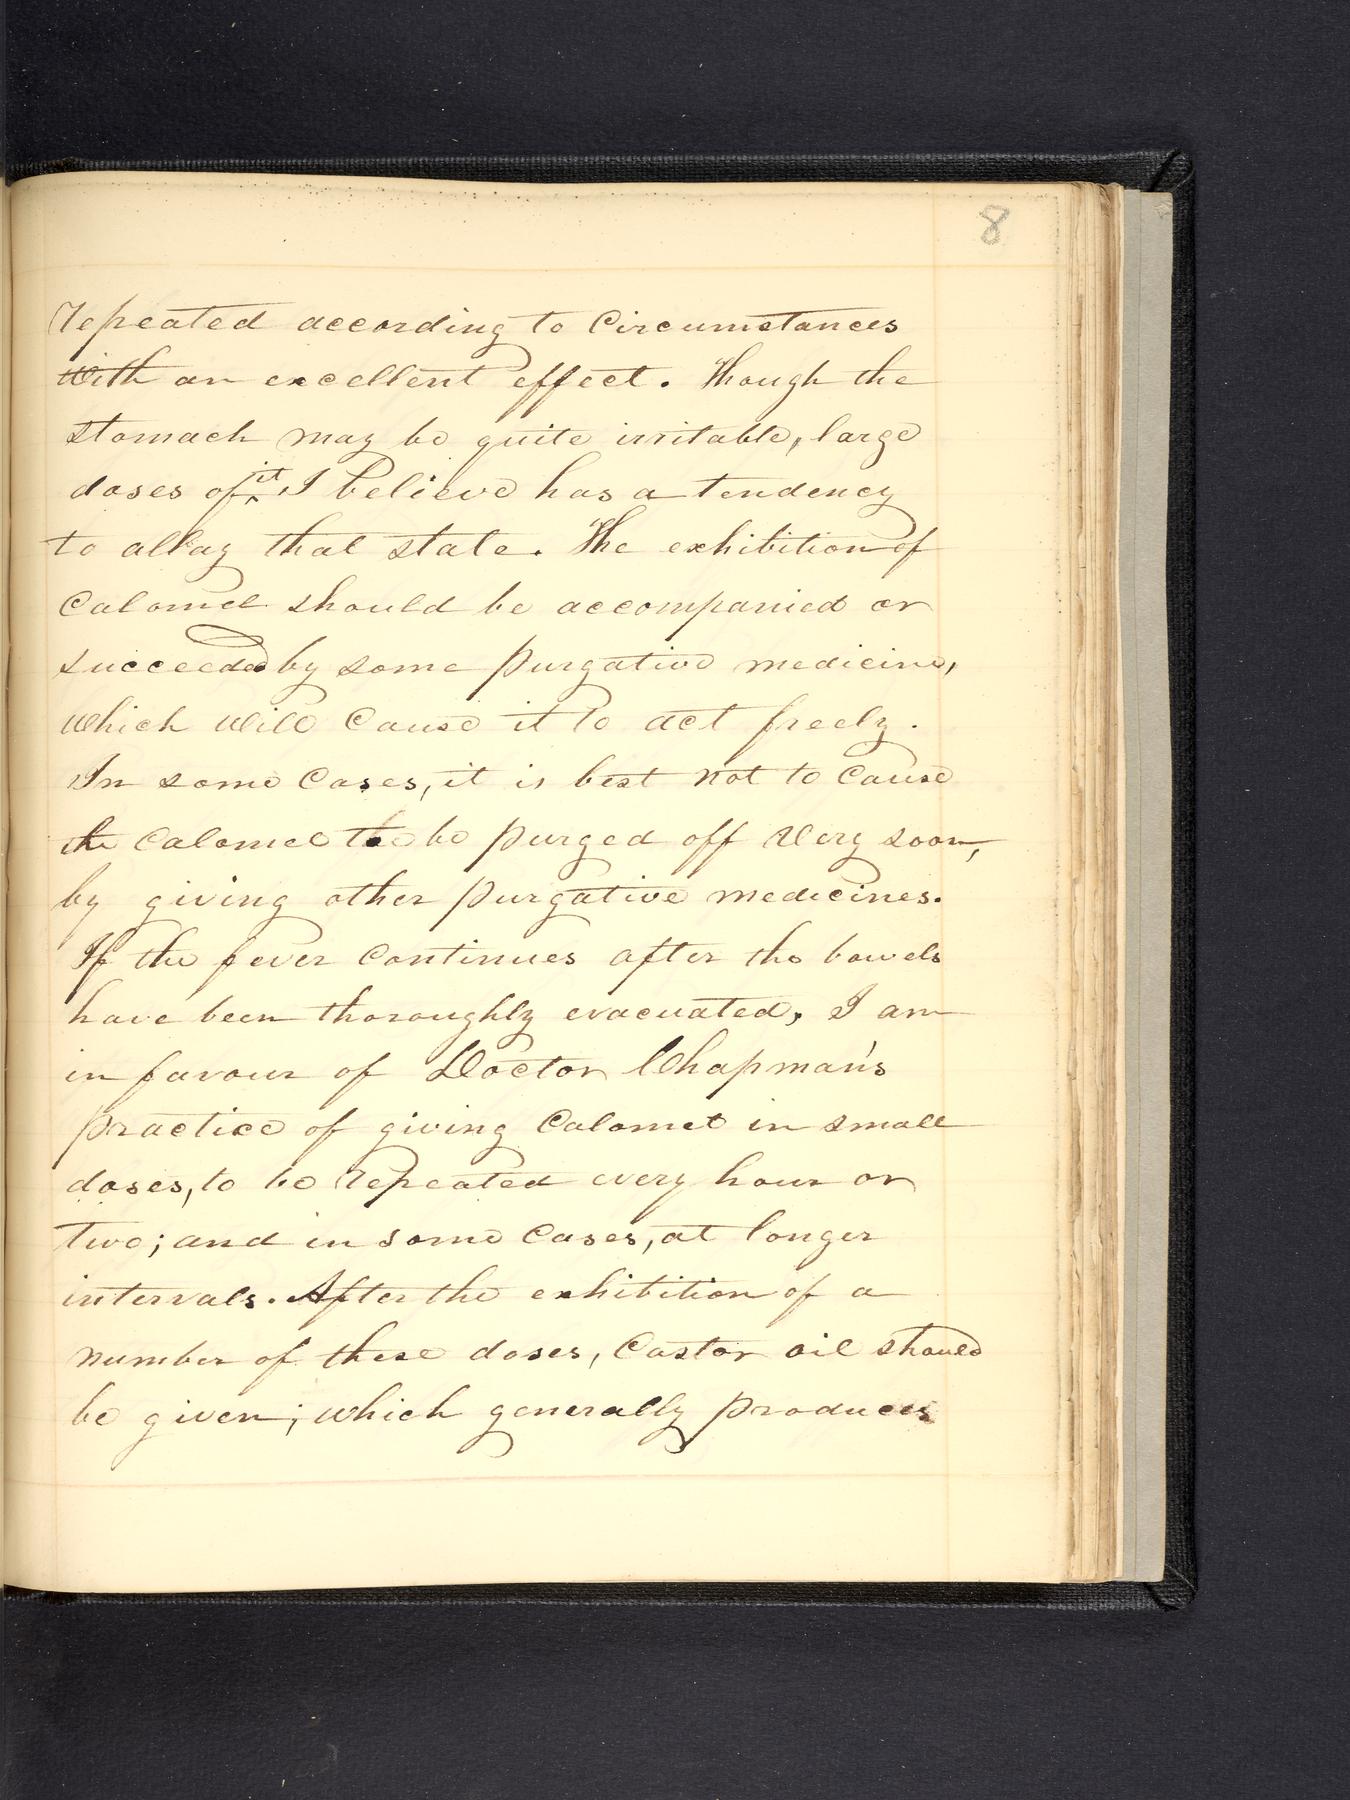 8
repeated according to Circumstances
with an excellent effect. Though the
stomach may be quite irritable, large
doses of it, I believe has a tendency
to allay that state. The exhibition of
Calomel should be accompanied or
succeeded by some purgative medicine,
which will Cause it to act freely.
In some Cases, it is best not to Cause
the Calomel to be purged off very soon,
by giving other purgative medicines.
If the fever Continues after the bowels
have been thoroughly evacuated, I am
in favour of Doctor Chapman's
practice of giving Calomel in small
doses, to be repeated every hour or
two; and in some Cases, at longer
intervals. After the exhibition of a
number of these doses, Castor oil should
be given; which generally produces